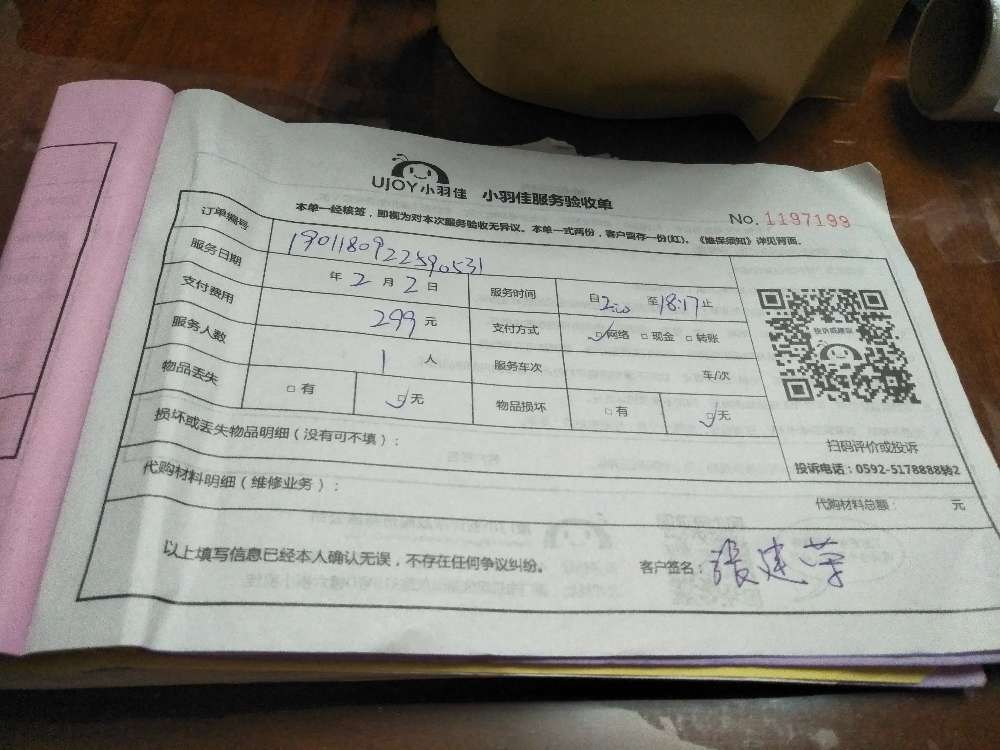 UJOY小羽佳 小羽佳服务验收单
No. 1197199
本单一经核签，即视为对本次服务验收无异议。本单一式两份，客户留存一份(红)。《维保须知》详见背面。
订单编号 1901180922590531
服务日期 年 2 月 2 日 服务时间 自 2:00 至 18:17 止
支付费用 299 元 支付方式 □网络 □现金 □转账
服务人数 1 人 服务车次 车/次
物品丢失 □有 □无 物品损坏 □有 □无
投诉或建议
扫码评价或投诉
投诉电话：0592-5178888转2
损坏或丢失物品明细（没有可不填）：
代购材料明细（维修业务）：
代购材料总额： 元
以上填写信息已经本人确认无误，不存在任何争议纠纷。 客户签名：张建荣